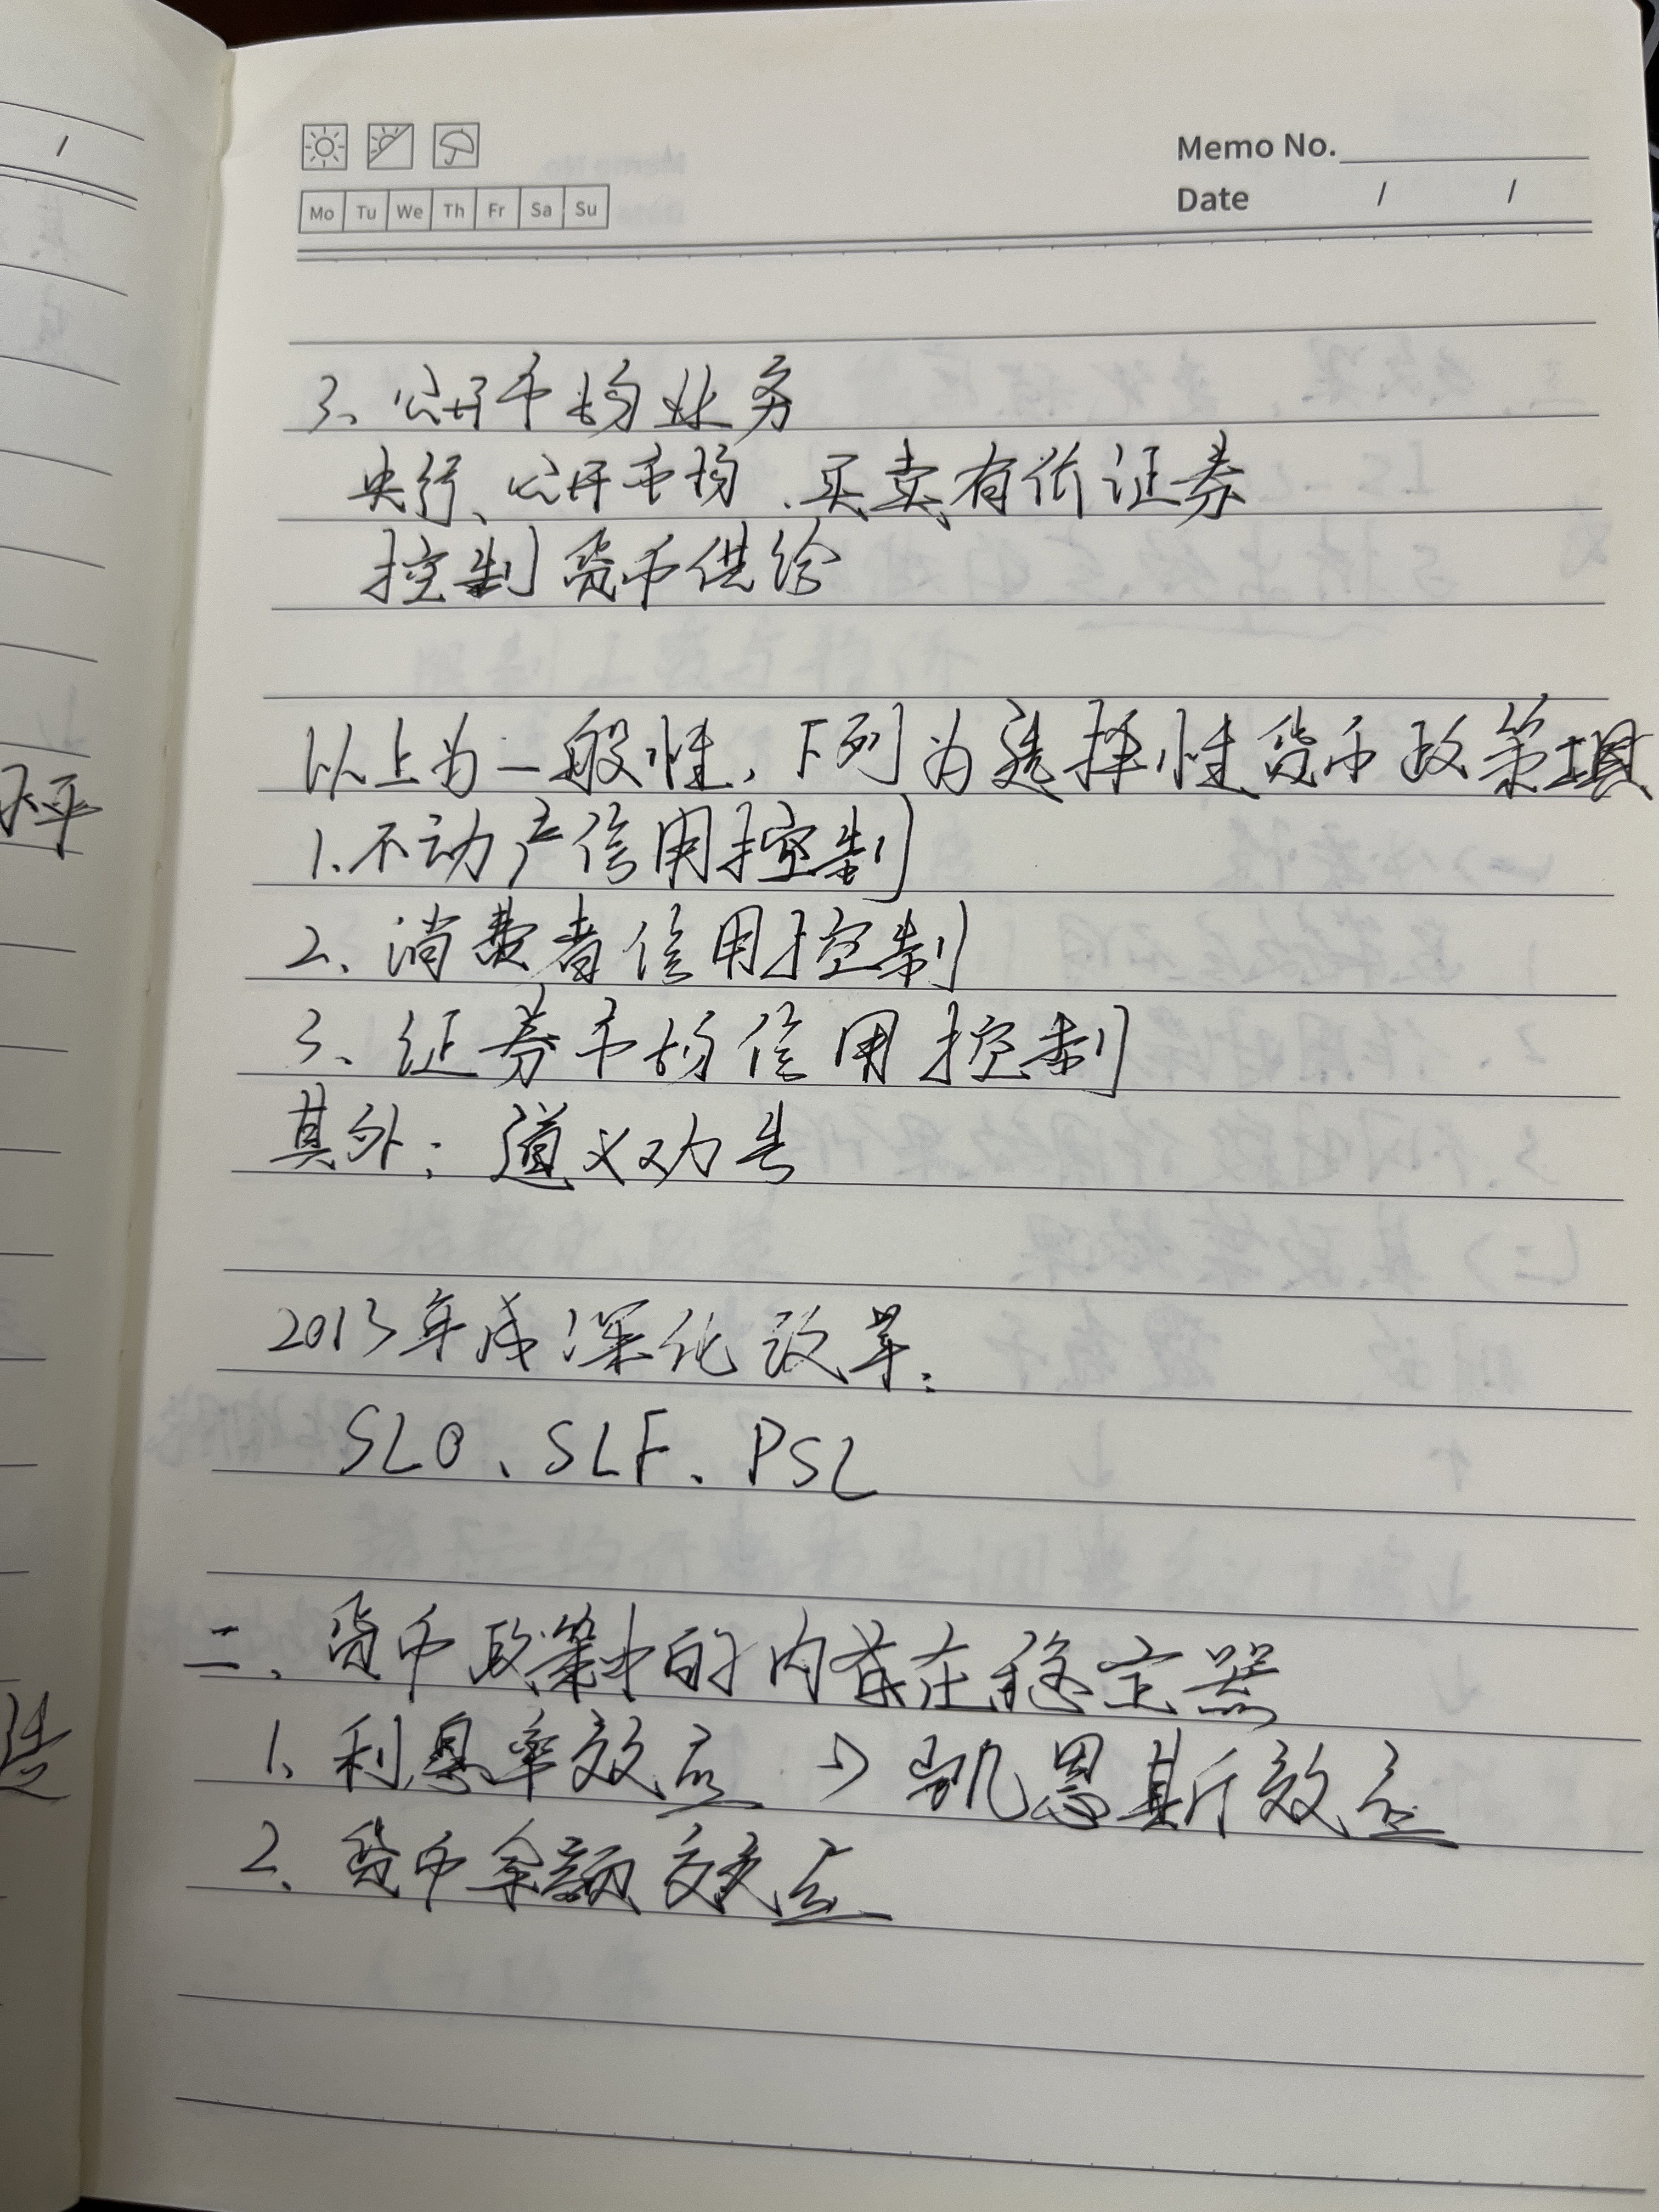 Memo No.
Mo Tu We Th Fr Sa Su
Date / /
3、公开市场业务
央行、公开市场、买卖有价证券
控制货币供给
以上为一般性，下列为选择性货币政策工具
1.不动产信用控制
2、消费者信用控制
3、证券市场信用控制
其外：道义劝告
2013年底深化改革：
SLO、SLF、PSL
二、货币政策中的内在稳定器
1、利息率效应 → 凯恩斯效应
2、货币余额效应